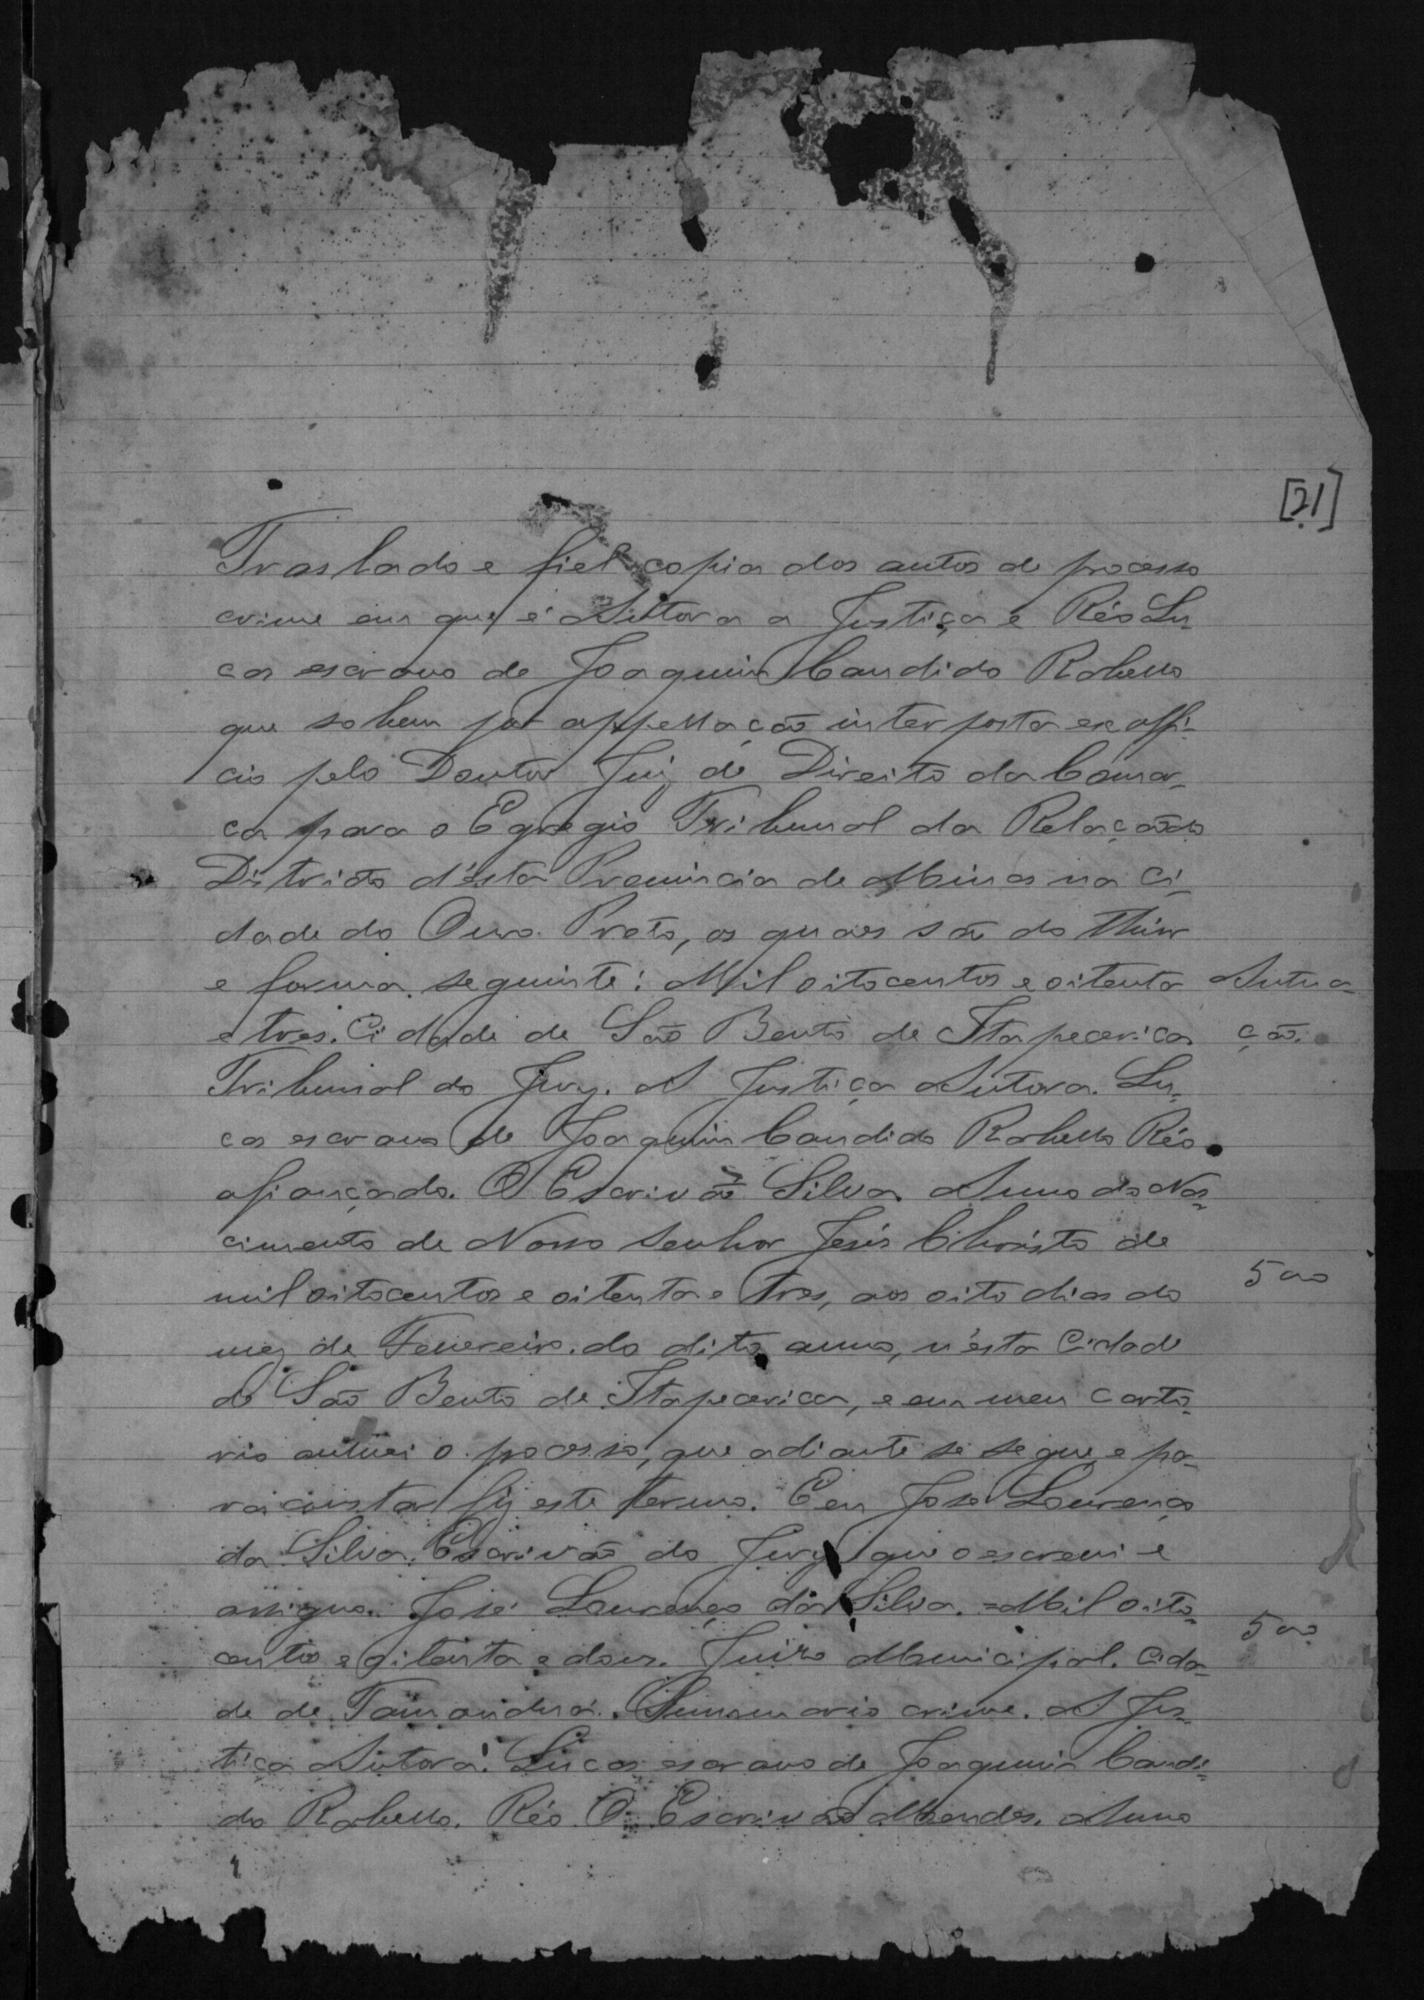 [21]
Traslado e fiel copia dos autos de processo
crime em que é Autora a Justiça e Réo Lu-
cas escravo de Joaquim Candido Rabello
que sobem por appellação interposta ex offi-
cio pelo Doutor Juiz de Direito da Comar-
ca para o Egregio Tribunal da Relação do
Districto d'esta Provincia de Minas na Ci-
dade do Ouro Preto, os quaes são do theor
e forma seguinte: Mil oitocentos e oitenta Autua-
e tres. Cidade de São Bento de Itapecerica ção.
Tribunal do Jury. A Justiça Autora. Lu-
cas escravo de Joaquim Candido Rabello Réo
afiançado. O Escrivão Silva. Anno do Nas-
cimento de Nosso Senhor Jesús Christo de
mil oitocentos e oitenta e tres, aos oito dias do 500
mez de Fevereiro do dito anno, n'ésta Cidade
de São Bento de Itapecerica, e em meu carto-
rio autuei o processo, que adiante se segue e pa-
ra constar fiz este termo. E eu José Lourenço
da Silva, Escrivão do Jury que o escrevi e
assigno. José Lourenço da Silva. = Mil oito-
centos e oitenta e dous. Juizo Municipal. Cida- 500
de de Tamanduá. Summario crime. A Jus-
tiça Autora. Lucas escravo de Joaquim Candi-
do Rabello. Réo. O Escrivão Mendes. Anno